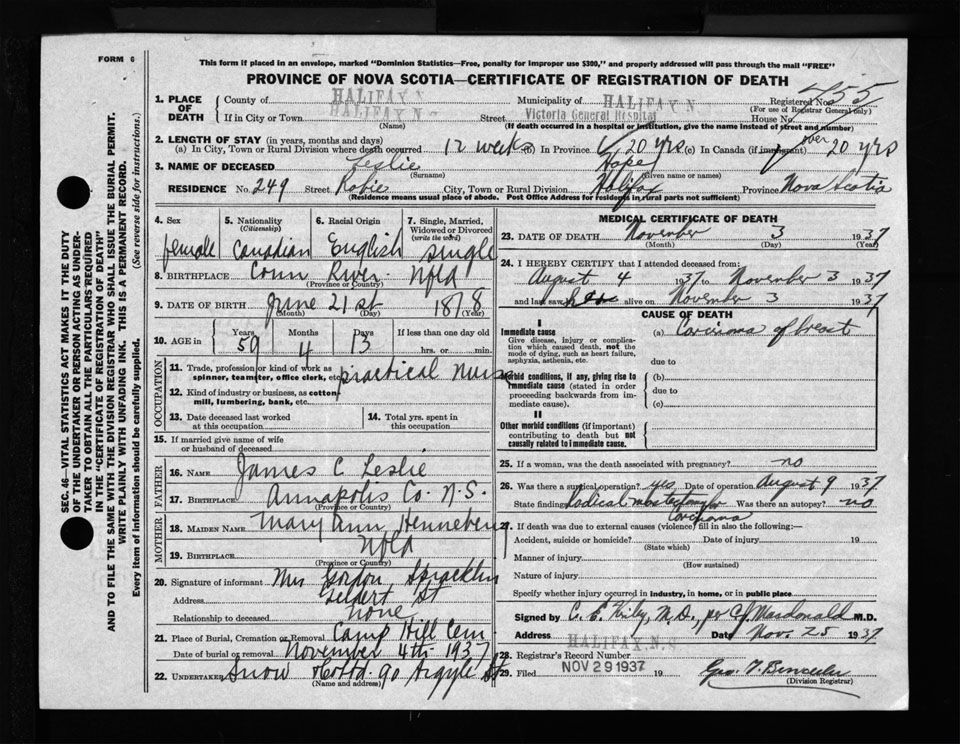 FORM 6
This form if placed in an envelope, marked "Dominion Statistics—Free, penalty for improper use $300," and properly addressed will pass through the mail "FREE"
PROVINCE OF NOVA SCOTIA—CERTIFICATE OF REGISTRATION OF DEATH
1. PLACE OF DEATH
County of HALIFAX Municipality of HALIFAX N Registered No. 455
(For use of Registrar General only)
If in City or Town HALIFAX N. Street Victoria General Hospital House No.
(Name) (If death occurred in a hospital or institution, give the name instead of street and number)
2. LENGTH OF STAY (in years, months and days)
(a) In City, Town or Rural Division where death occurred 12 weeks In Province 20 yrs (c) In Canada (if immigrant) over 20 yrs
3. NAME OF DECEASED Leslie Hope
(Surname) (Given name or names)
RESIDENCE No. 249 Street Robie City, Town or Rural Division Halifax Province Nova Scotia
(Residence means usual place of abode. Post Office Address for residents in rural parts not sufficient)
4. Sex female
5. Nationality (Citizenship) Canadian
6. Racial Origin English
7. Single, Married, Widowed or Divorced (write the word) Single
8. BIRTHPLACE Conn River Nfld
(Province or Country)
9. DATE OF BIRTH June 21st 1878
(Month) (Day) (Year)
10. AGE in Years 59 Months 4 Days 13 If less than one day old hrs. or min.
OCCUPATION
11. Trade, profession or kind of work as spinner, teamster, office clerk, etc. practical Nurse
12. Kind of industry or business, as cotton-mill, lumbering, bank, etc.
13. Date deceased last worked at this occupation
14. Total yrs. spent in this occupation
15. If married give name of wife or husband of deceased
FATHER
16. NAME James C. Leslie
17. BIRTHPLACE Annapolis Co. N.S.
(Province or Country)
MOTHER
18. MAIDEN NAME Mary Ann
19. BIRTHPLACE Nfld
(Province or Country)
20. Signature of informant Mrs Gordon
Address St
Relationship to deceased none
21. Place of Burial, Cremation or Removal Camp Hill Cem
Date of burial or removal November 4th 1937
22. UNDERTAKER Snow 90 Argyle St
(Name and address)
MEDICAL CERTIFICATE OF DEATH
23. DATE OF DEATH November 3 1937
(Month) (Day) (Year)
24. I HEREBY CERTIFY that I attended deceased from:
August 4 1937 to November 3 1937
and last saw alive on November 3 1937
CAUSE OF DEATH
I
Immediate cause (a) Carcinoma of breast
Give disease, injury or complication which caused death, not the mode of dying, such as heart failure, asphyxia, asthenia, etc.
due to
Morbid conditions, if any, giving rise to immediate cause (stated in order proceeding backwards from immediate cause).
(b)
due to
(c)
II
Other morbid conditions (if important) contributing to death but not causally related to immediate cause.
25. If a woman, was the death associated with pregnancy? no
26. Was there a surgical operation? yes Date of operation August 9 1937
State finding Radical mastectomy for Carcinoma Was there an autopsy? no
27. If death was due to external causes (violence) fill in also the following:—
Accident, suicide or homicide? Date of injury 19
(State which)
Manner of injury
(How sustained)
Nature of injury
Specify whether injury occurred in industry, in home, or in public place
Signed by M.D., per Macdonald M.D.
Address HALIFAX, N.S. Date Nov. 25 1937
28. Registrar's Record Number
29. Filed NOV 29 1937 19 Geo.
(Division Registrar)
SEC. 46—VITAL STATISTICS ACT MAKES IT THE DUTY
OF THE UNDERTAKER OR PERSON ACTING AS UNDER-
TAKER TO OBTAIN ALL THE PARTICULARS REQUIRED
IN THE "CERTIFICATE OF REGISTRATION OF DEATH"
AND TO FILE THE SAME WITH THE DIVISION REGISTRAR WHO SHALL ISSUE THE BURIAL PERMIT.
WRITE PLAINLY WITH UNFADING INK. THIS IS A PERMANENT RECORD.
Every item of information should be carefully supplied. (See reverse side for instructions.)